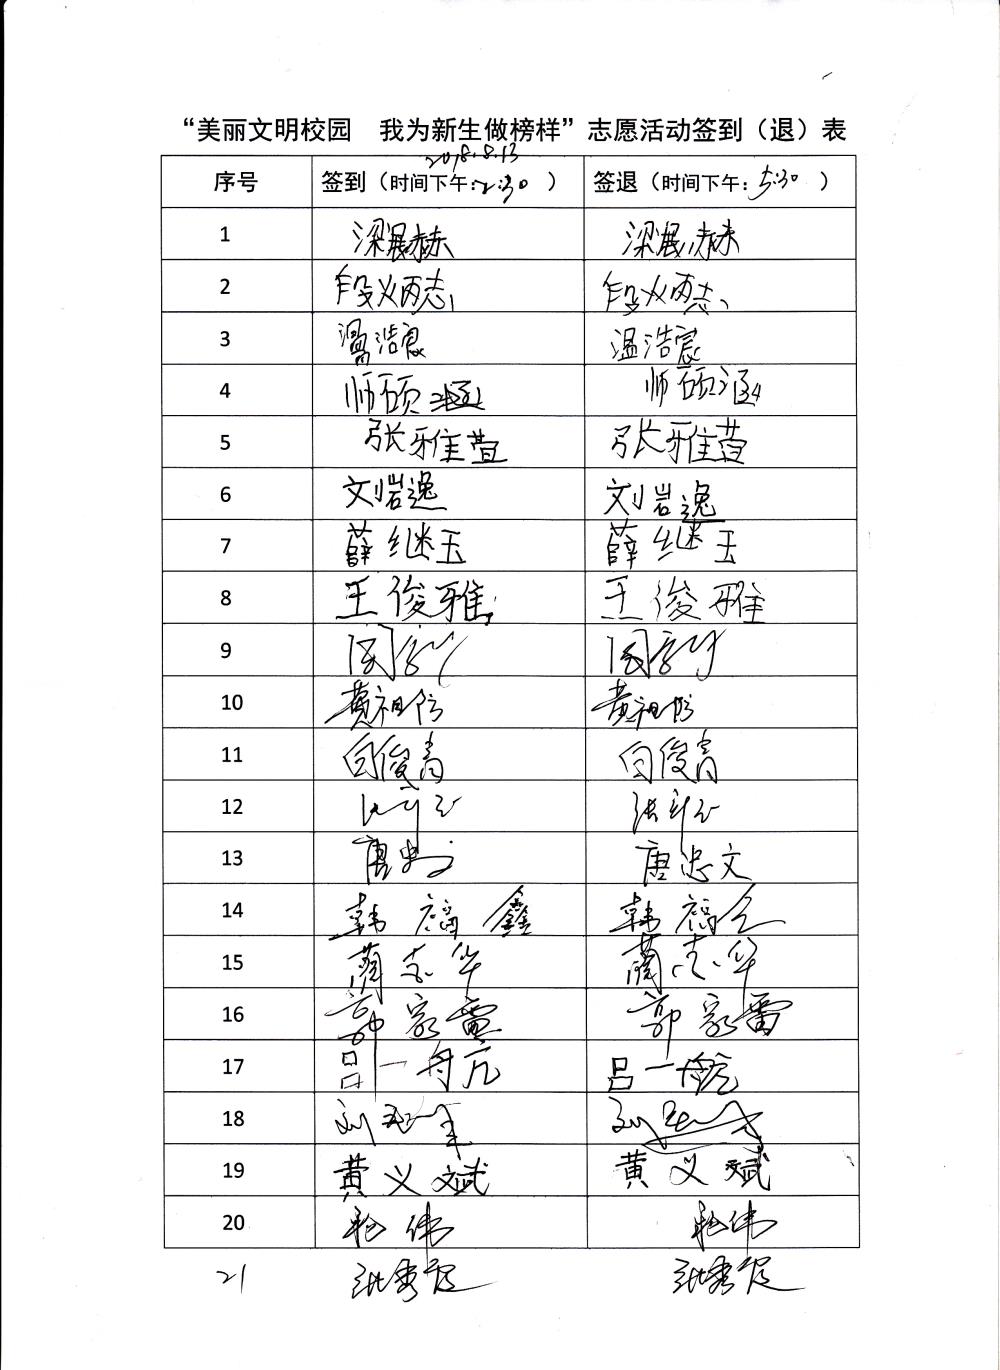 “美丽文明校园 我为新生做榜样”志愿活动签到（退）表
2018.8.13
序号 签到（时间下午:2:30 ） 签退（时间下午:5:30 ）
1 梁展赫 梁展赫
2 段义丙志 段义丙志
3 温浩宸 温浩宸
4 师硕涵 师硕涵
5 张雅萱 张雅萱
6 刘岩逸 刘岩逸
7 薛继玉 薛继玉
8 王俊雅 王俊雅
9
10 黄祖 黄祖
11 白俊青 白俊青
12 张
13 唐忠文 唐忠文
14 韩 鑫 韩
15 蔺志华 蔺志华
16 郭家雷 郭家雷
17 吕一航 吕一航
18 刘 刘
19 黄义斌 黄义斌
20 伟 伟
21 张秀 张秀